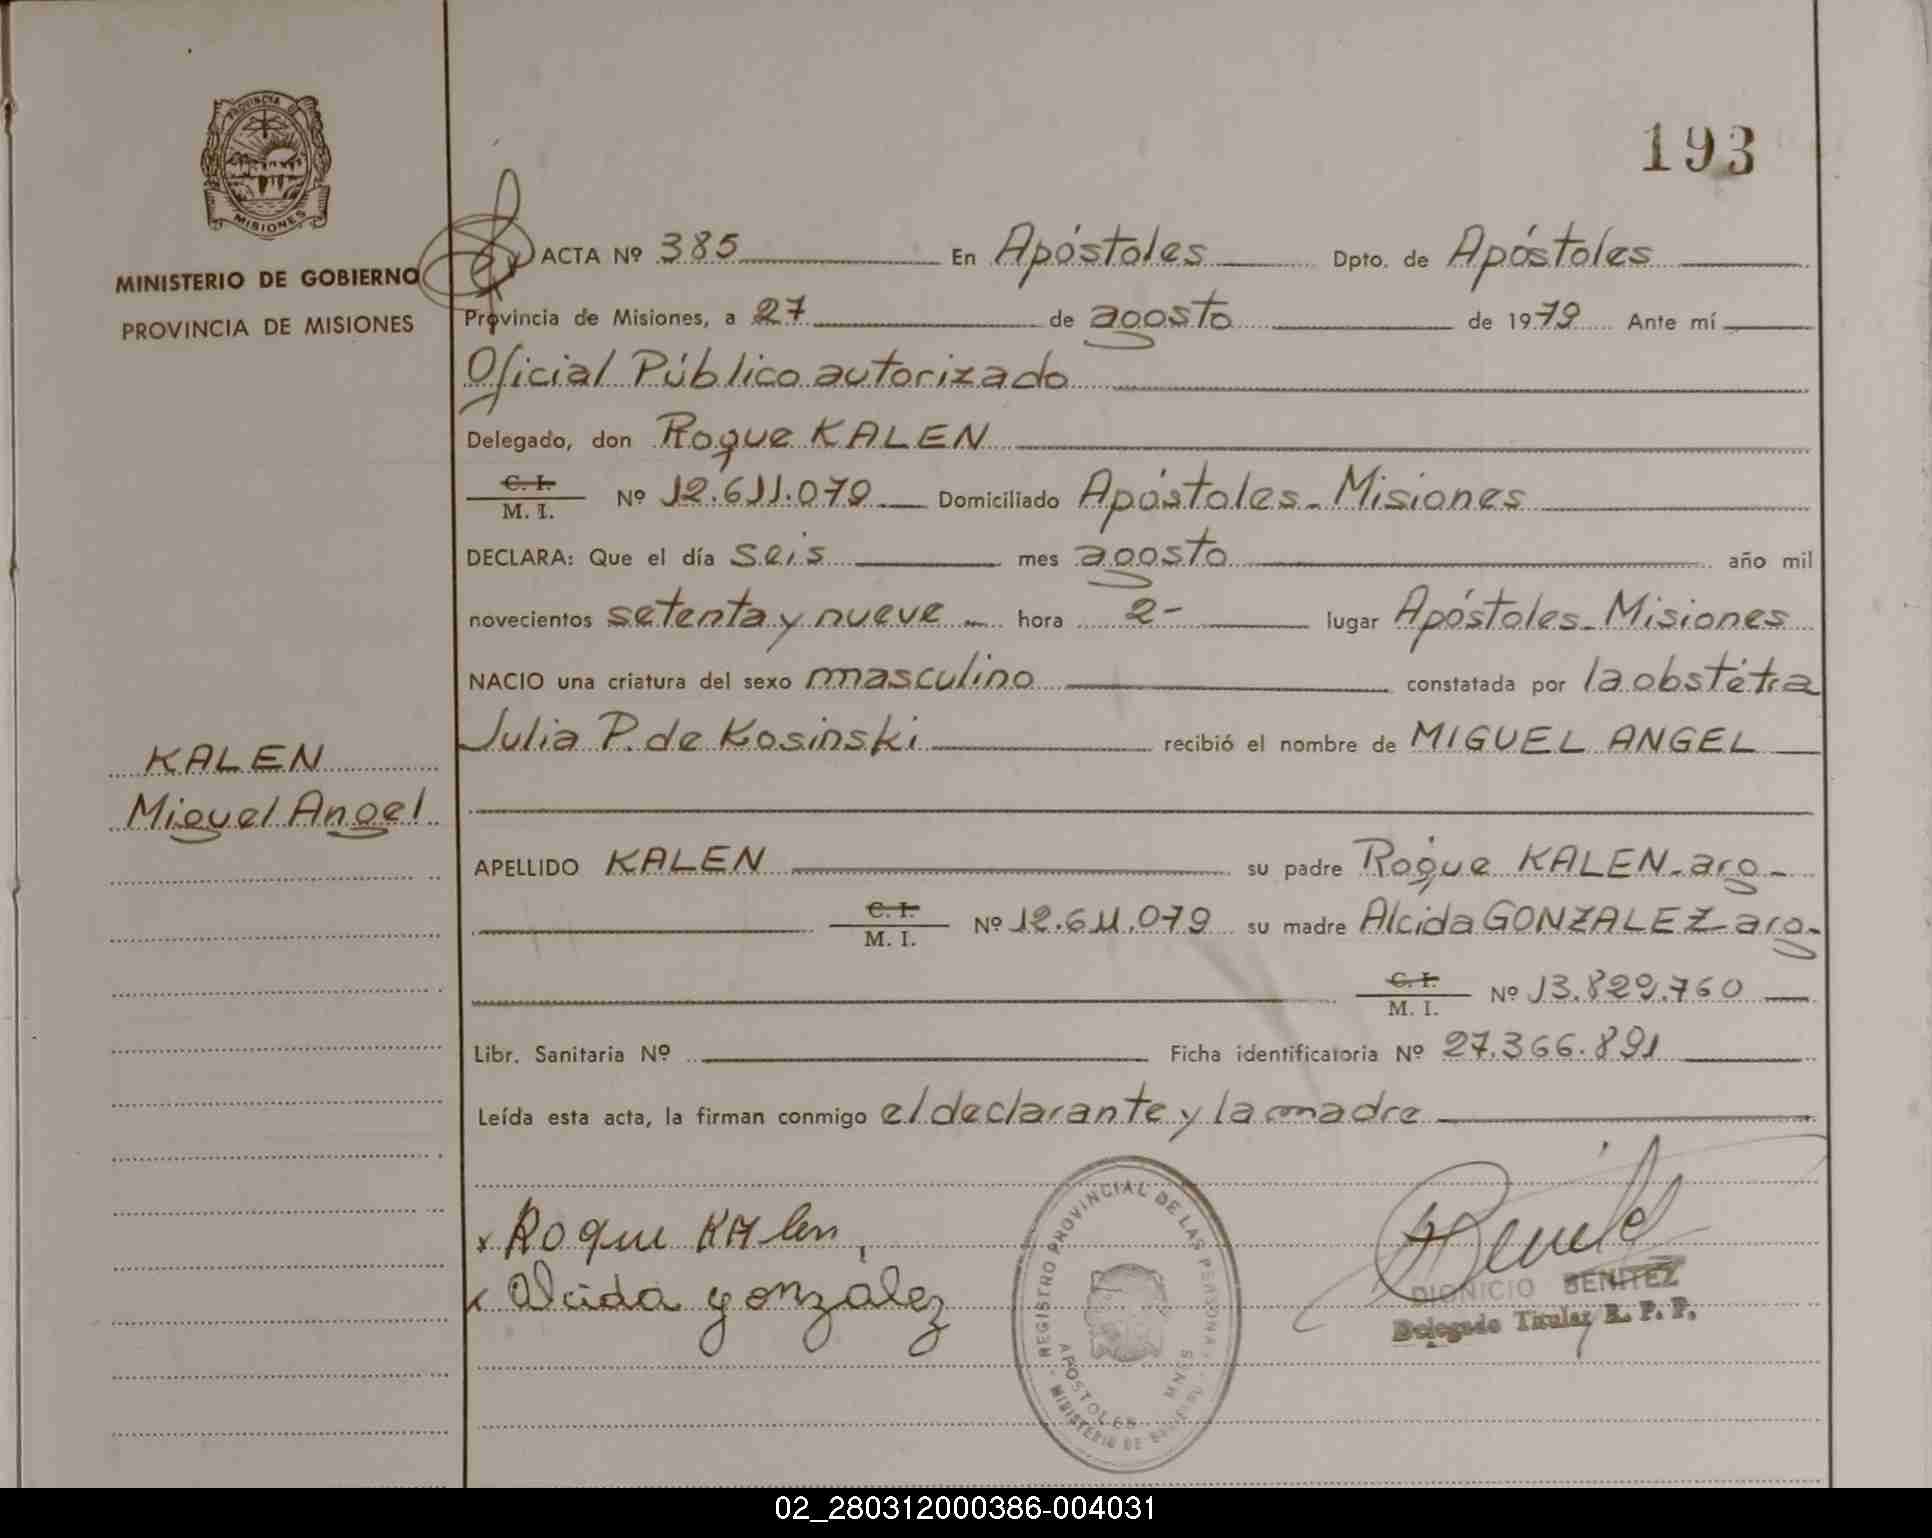 PROVINCIA DE
MISIONES
MINISTERIO DE GOBIERNO
PROVINCIA DE MISIONES
193
ACTA Nº 385 En Apóstoles Dpto. de Apóstoles
Provincia de Misiones, a 27 de agosto de 1979 Ante mí
Oficial Público autorizado
Delegado, don Roque KALEN
C. I.
M. I. Nº 12.611.079 Domiciliado Apóstoles - Misiones
DECLARA: Que el día seis mes agosto año mil
novecientos setenta y nueve hora 2- lugar Apóstoles - Misiones
NACIO una criatura del sexo masculino constatada por la obstétra
Julia P. de Kosinski recibió el nombre de MIGUEL ANGEL
KALEN
Miguel Angel
APELLIDO KALEN su padre Roque KALEN - arg -
C. I.
M. I. Nº 12.611.079 su madre Alcida GONZALEZ - arg -
C. I.
M. I. Nº 13.829.760
Libr. Sanitaria Nº Ficha identificatoria Nº 27.366.891
Leída esta acta, la firman conmigo el declarante y la madre
x Roque KAlen,
x Alcida gonzalez
REGISTRO PROVINCIAL DE LAS PERSONAS
APOSTOLES MNES
MINISTERIO DE GOBIERNO
DIONICIO BENITEZ
Delegado Titular R. P. P.
02_280312000386-004031